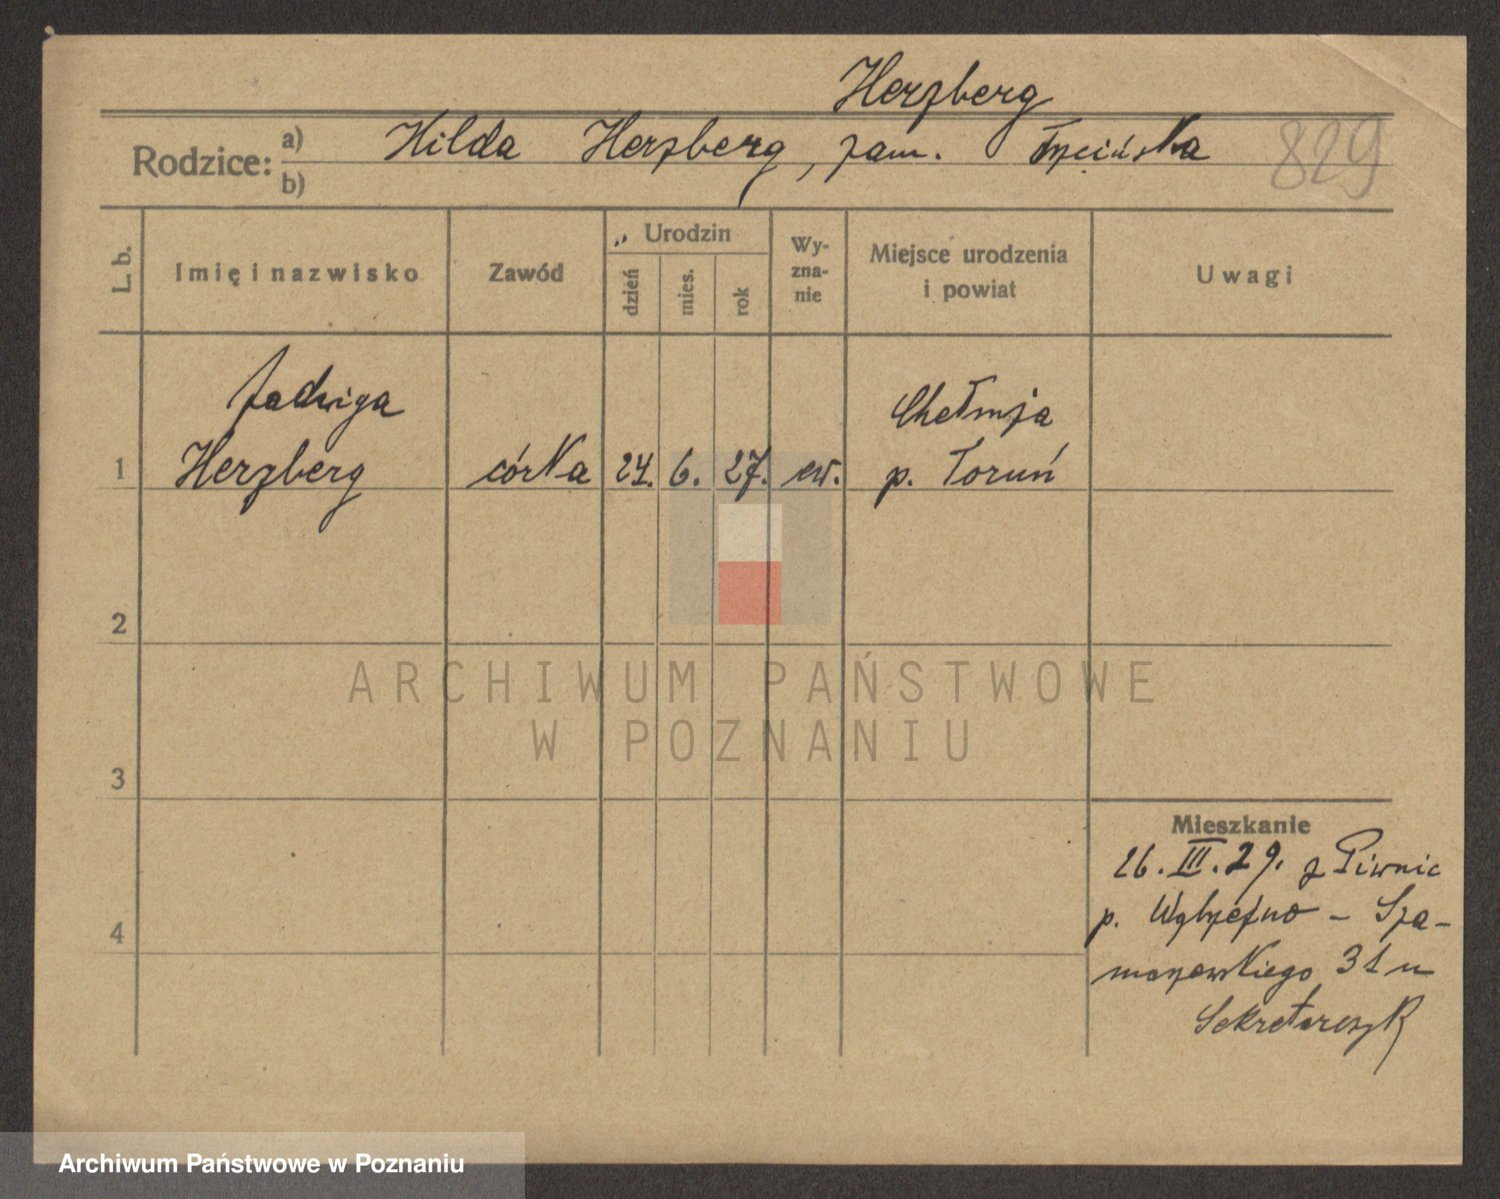 Herzberg
Rodzice: a) Hilda Herzberg, zam. 829
b)
L. b.
Imię i nazwisko
Zawód
„ Urodzin
dzień
mies.
rok
Wy-
zna-
nie
Miejsce urodzenia
i powiat
Uwagi
Jadwiga
Chełmża
1 Herzberg córka 24. 6. 27. ew. p. Toruń
2
3
4
ARCHIWUM PAŃSTWOWE
W POZNANIU
Mieszkanie
26. III. 29. z Piwnic
p. Wąbrzeźno – Sza-
marzewskiego 31 u
Sekretarczyk
Archiwum Państwowe w Poznaniu